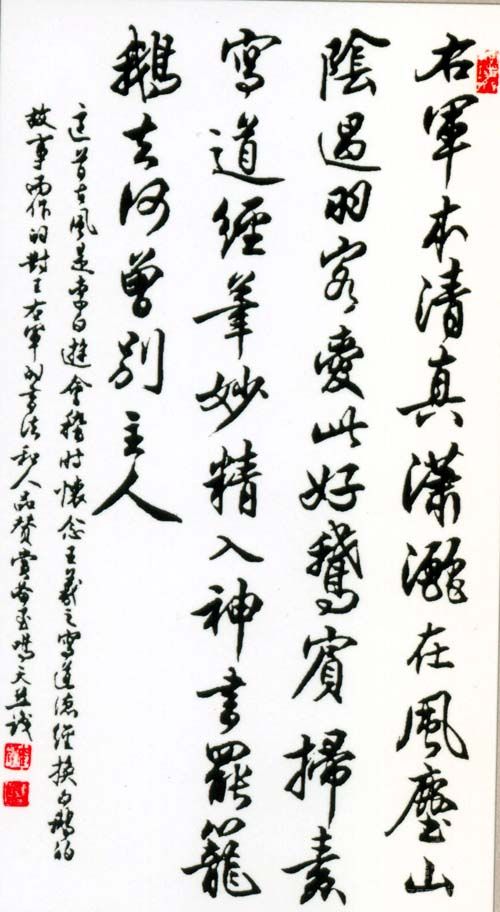 右軍本清真瀟灑在風塵山
陰遇羽客愛此好鵝賓掃素
寫道經筆妙精入神書罷籠
鵝去何曾別主人
這首古風是李白遊會稽時懷念王羲之寫道德經換白鵝的
故事而作的對王右軍的書法和人品贊賞備至